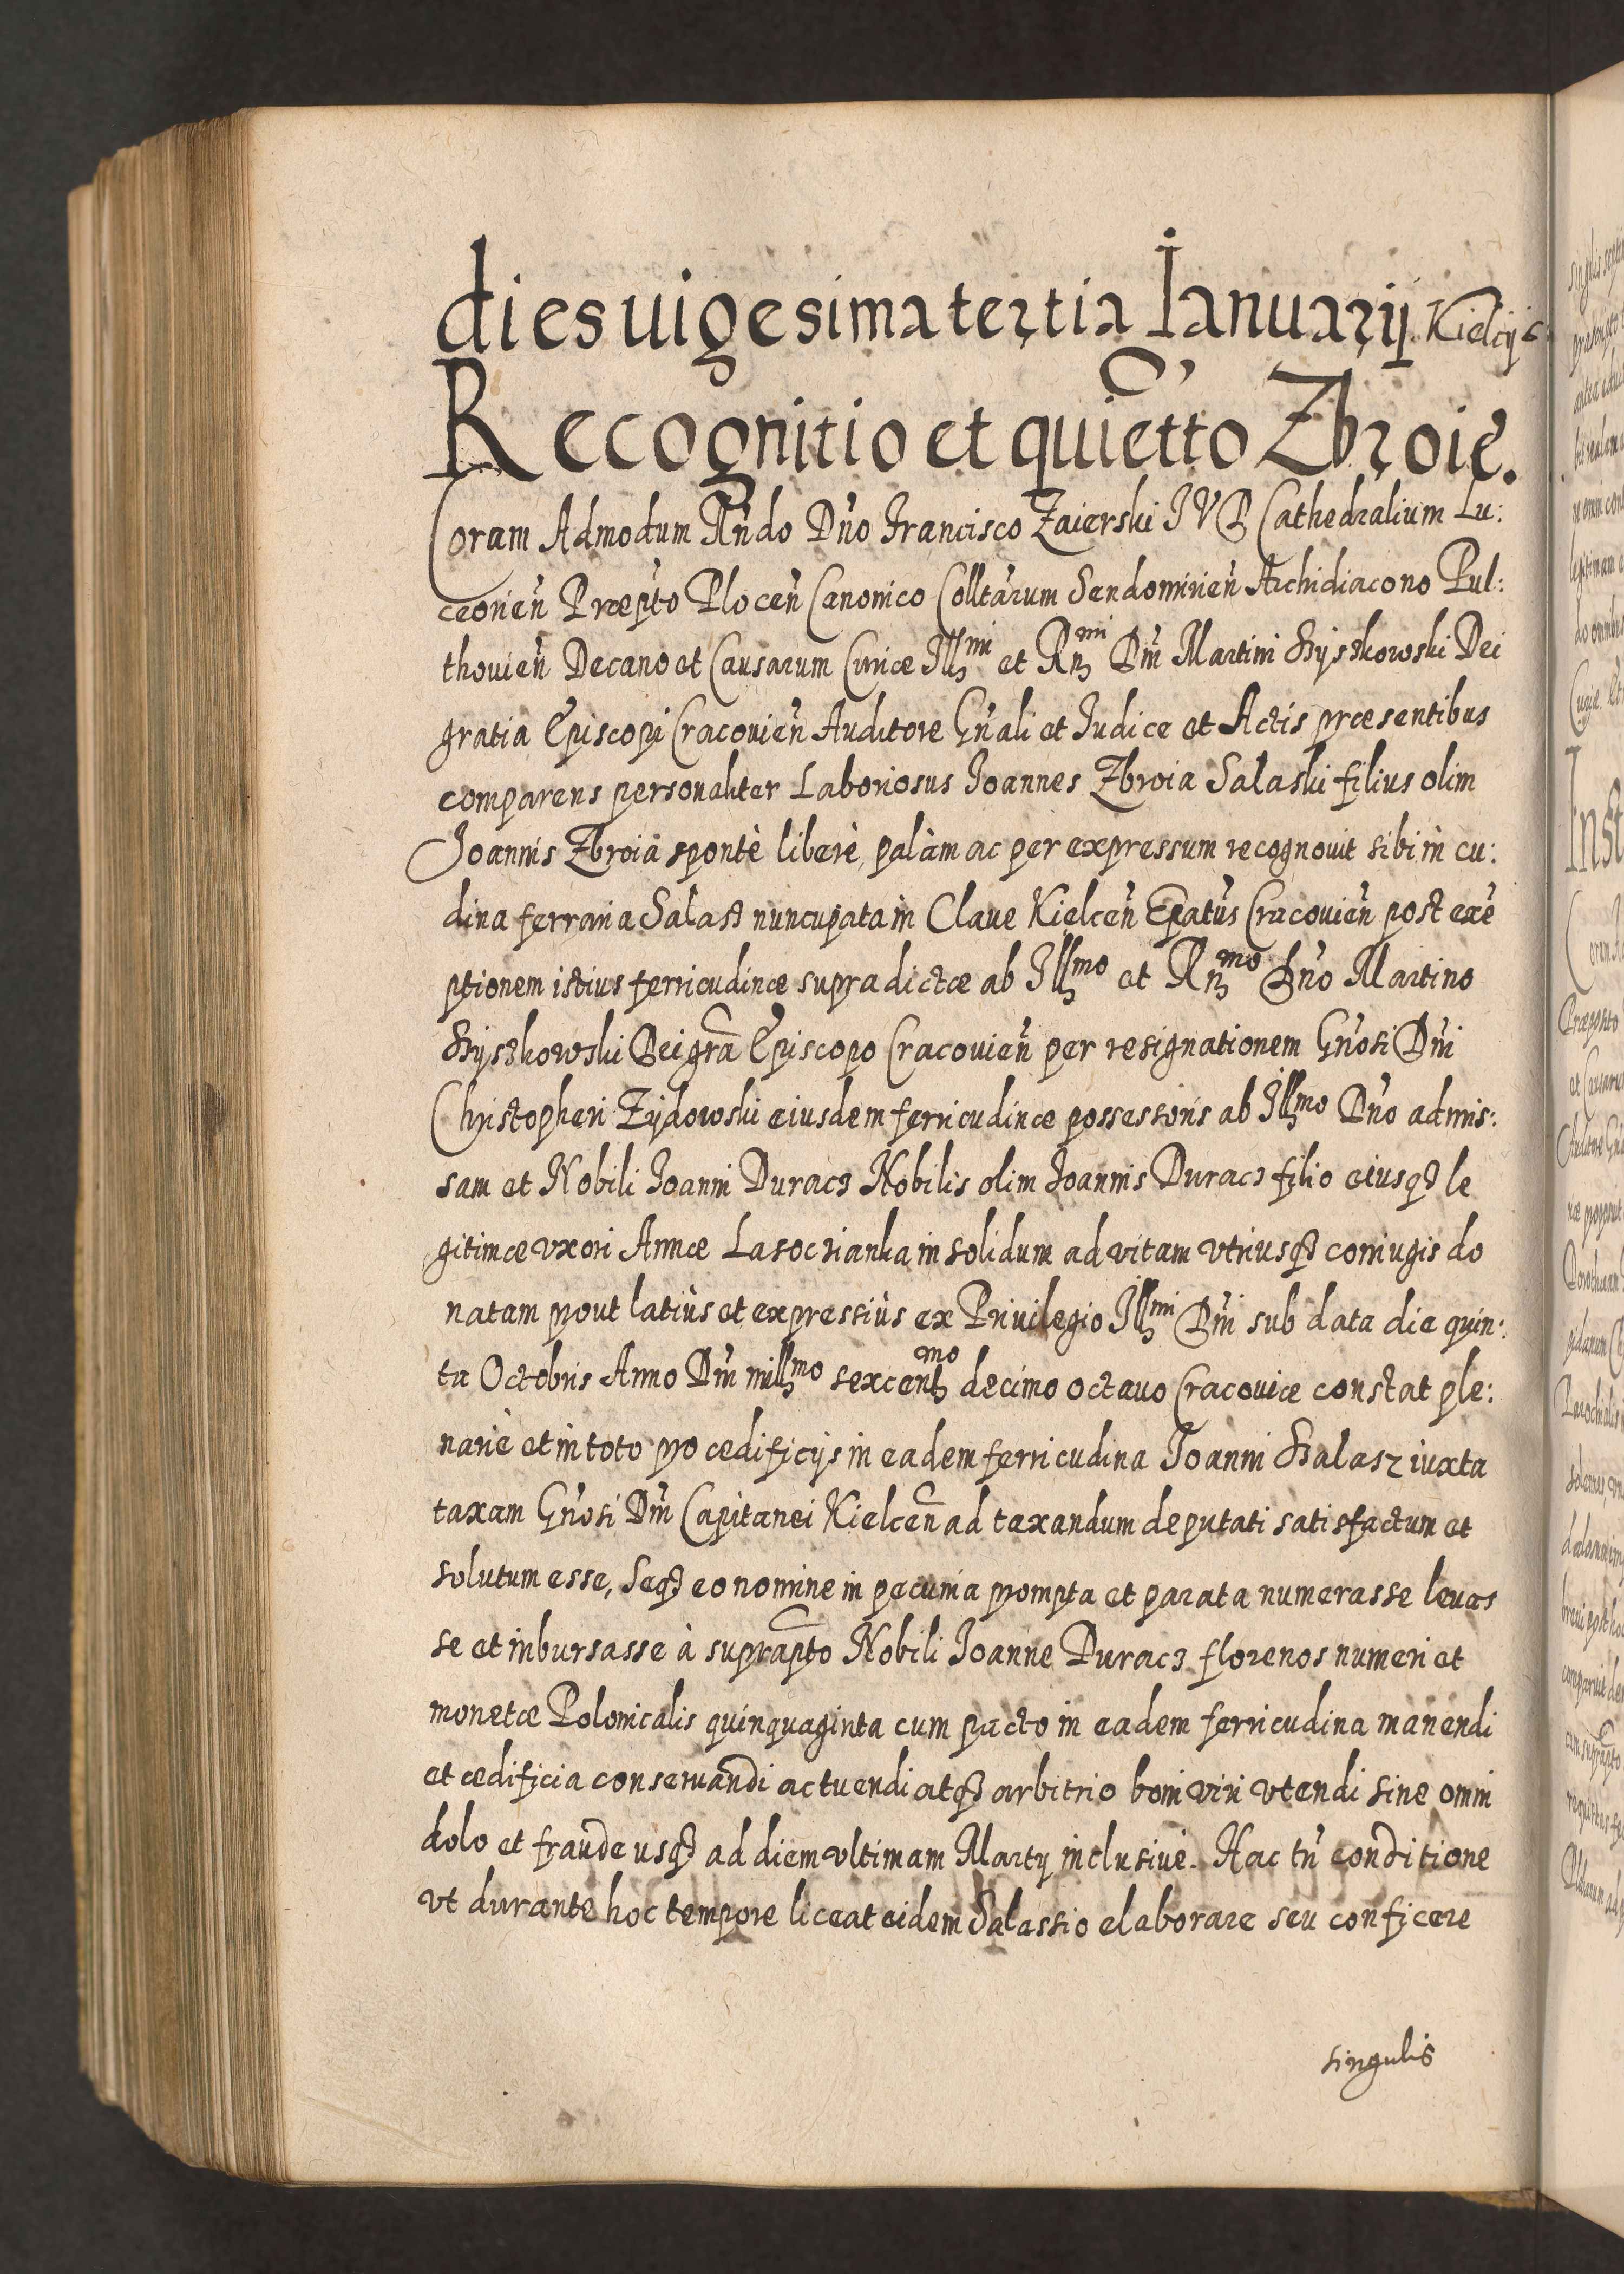 dies uigesima tertia Ianuarij Kielcij
Recognitio et quietto Zbroie.
Coram Admodum Rñdo Dño Francisco Zaierski IVD Cathedralium Lu:
ceorieñ Præpto Ploceñ Canonico Colltarum Sendomirieñ Archidiacono Pul:
thouieñ Decano et Causarum Curiæ Illmi et Rmi Dñi Martini Szyszkowski Dei
gratia Episcopi Cracouieñ Auditore Gñali et Iudice et Actis præsentibus
comparens personaliter Laboriosus Ioannes Zbroia Salaski filius olim
Joannis Zbroia spontè liberè, palàm ac per expressum recognouit sibi in cu:
dina ferraria Salasz nuncupata in Claue Kielceñ Epatus Cracouieñ post exe
ptionem istius ferricudinæ supradictæ ab Illmo et Rmo Dño Martino
Szyszkowski Dei gra Episcopo Cracouieñ per resignationem Gñosi Dñi
Christopheri Zydowski eiusdem ferricudinæ possessoris ab Illmo Dño admis:
sam et Nobili Ioanni Duracz Nobilis olim Ioannis Duracz filio eiusq le
gitimæ vxori Annæ Lasoczianka in solidum ad vitam vtriusq coniugis do
natam prout latiùs et expressiùs ex Priuilegio Illmi Dñi sub data die quin:
ta Octobris Anno Dñi millmo sexcentmo decimo octauo Cracouiæ constat ple:
nariè et in toto pro ædificijs in eadem ferricudina Joanni Szalasz iuxta
taxam Gñosi Dñi Capitanei Kielceñ ad taxandum deputati satisfactum et
solutum esse, Seq eo nomine in pecunia prompta et parata numerasse leuas
se et inbursasse à suprapto Nobili Ioanne Duracz florenos numeri et
monetæ Polonicalis quinquaginta cum pacto in eadem ferricudina manendi
et ædificia conseruandi ac tuendi atq arbitrio boni viri vtendi sine omni
dolo et fraude usq ad diem vltimam Martij inclusiuè. Hac tñ conditione
vt durante hoc tempore liceat eidem Salassio elaborare seu conficere
singulis